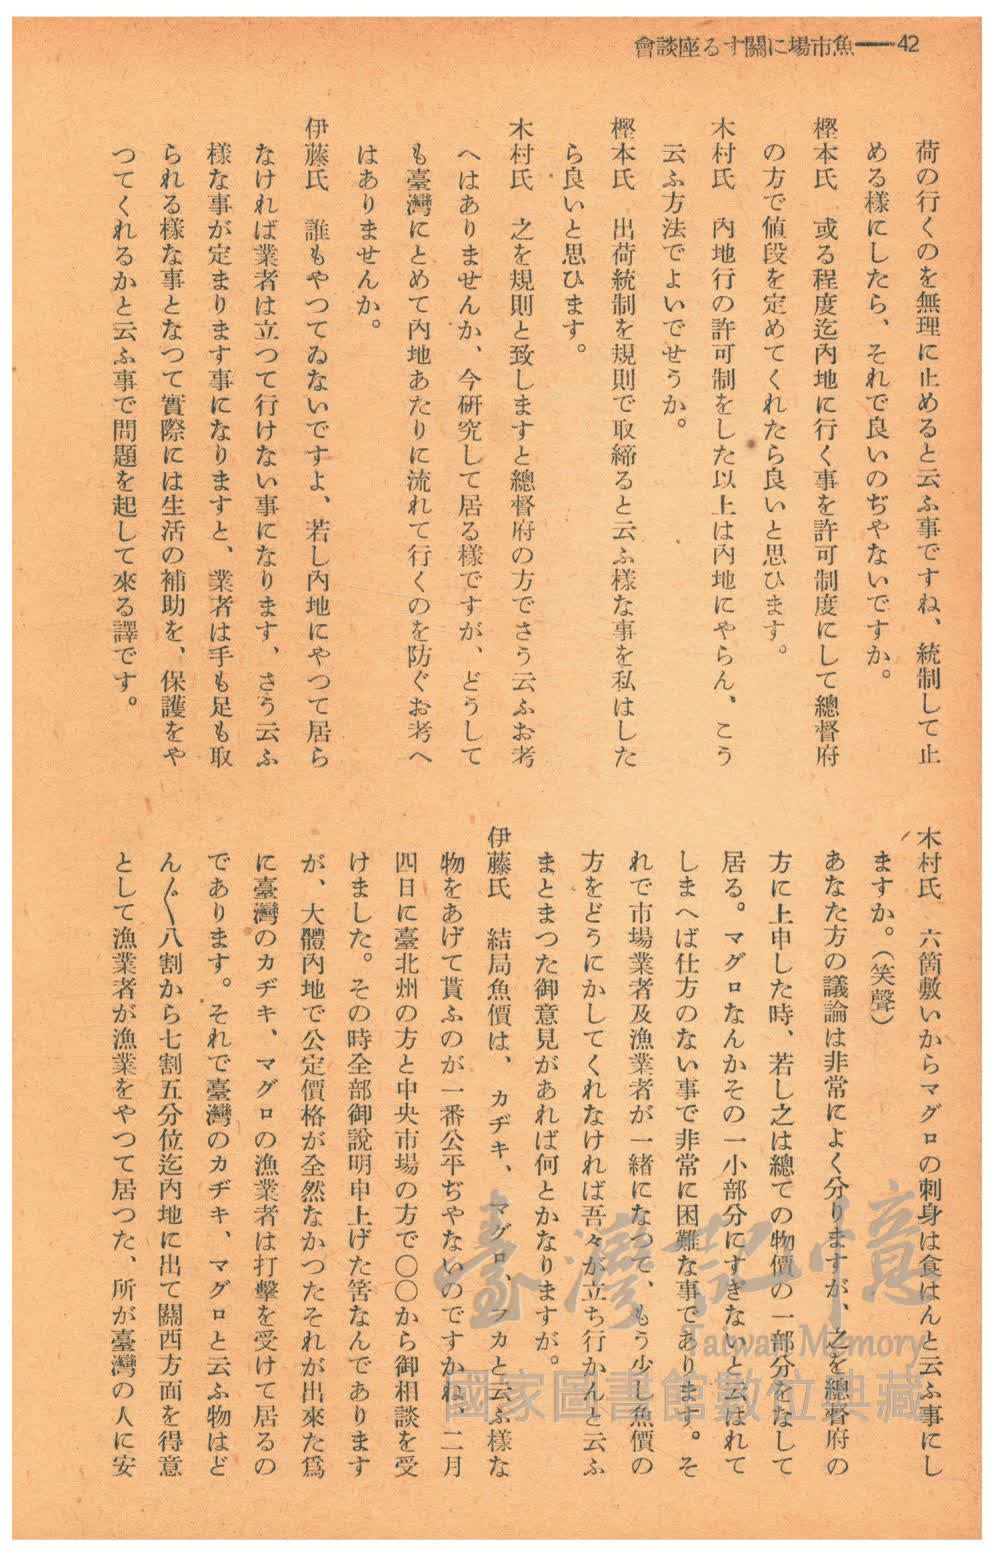 魚市場に關する座談會——42
荷の行くのを無理に止めると云ふ事ですね、統制して止
める樣にしたら、それで良いのぢやないですか。
樫本氏　或る程度迄內地に行く事を許可制度にして總督府
の方で値段を定めてくれたら良いと思ひます。
木村氏　內地行の許可制をした以上は內地にやらん、こう
云ふ方法でよいでせうか。
樫本氏　出荷統制を規則で取締ると云ふ樣な事を私はした
ら良いと思ひます。
木村氏　之を規則と致しますと總督府の方でさう云ふお考
へはありませんか、今研究して居る樣ですが、どうして
も臺灣にとめて內地あたりに流れて行くのを防ぐお考へ
はありませんか。
伊藤氏　誰もやつてゐないですよ、若し內地にやつて居ら
なければ業者は立つて行けない事になります、さう云ふ
樣な事が定まります事になりますと、業者は手も足も取
られる樣な事となつて實際には生活の補助を、保護をや
つてくれるかと云ふ事で問題を起して來る譯です。
木村氏　六箇敷いからマグロの刺身は食はんと云ふ事にし
ますか。（笑聲）
あなた方の議論は非常によく分りますが、之を總督府の
方に上申した時、若し之は總ての物價の一部分をなして
居る。マグロなんかその一小部分にすぎないと云はれて
しまへば仕方のない事で非常に困難な事であります。そ
れで市場業者及漁業者が一緒になつて、もう少し魚價の
方をどうにかしてくれなければ吾々が立ち行かんと云ふ
まとまつた御意見があれば何とかなりますが。
伊藤氏　結局魚價は、カヂキ、マグロ、フカと云ふ樣な
物をあげて貰ふのが一番公平ぢやないのですかね、二月
四日に臺北州の方と中央市場の方で〇〇から御相談を受
けました。その時全部御說明申上げた筈なんであります
が、大體內地で公定價格が全然なかつたそれが出來た爲
に臺灣のカヂキ、マグロの漁業者は打擊を受けて居るの
であります。それで臺灣のカヂキ、マグロと云ふ物はど
ん〱八割から七割五分位迄內地に出て關西方面を得意
として漁業者が漁業をやつて居つた、所が臺灣の人に安
臺灣記憶
Taiwan Memory
國家圖書館數位典藏